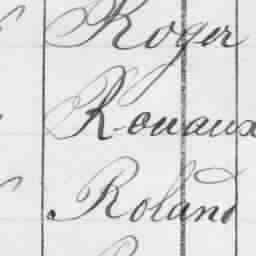 Roger
Rouaux
Roland